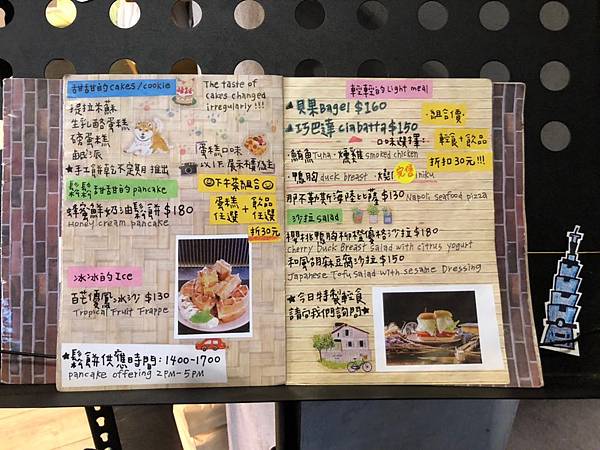 甜甜的cakes/cookie
The taste of
cakes changed
irregularly!!!
提拉米蘇
生乳酪蛋糕
磅蛋糕
鹹派
蛋糕口味
以展示櫃為主
★手工餅乾不定期推出
鬆鬆甜甜的pancake
☺下午茶組合☺
蛋糕 + 飲品
任選 任選
折30元
蜂蜜鮮奶油鬆餅 $180
Honey cream pancake
冰冰的Ice
百芒優風冰沙 $130
Tropical Fruit Frappe
★鬆餅供應時間:1400-1700
pancake offering 2PM-5PM
輕輕的Light meal
▲貝果Bagel $160
▲巧巴達ciabatta $150
組合價
輕食+飲品
折扣30元!!!
口味選擇:
·鮪魚Tuna·燻雞smoked chicken
·鴨胸duck breast
完售
niku
那不勒斯海陸比薩 $130 Napoli seafood pizza
沙拉salad
櫻桃鴨胸柳橙優格沙拉 $180
Cherry Duck Breast Salad with citrus yogurt
和風胡麻豆腐沙拉 $150
Japanese Tofu Salad with sesame Dressing
★今日特製輕食
請向我們詢問★